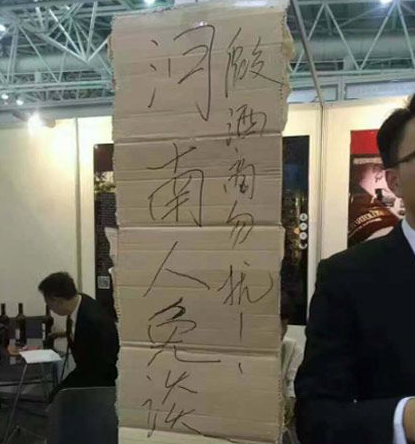 假酒商勿扰!!
河南人免谈